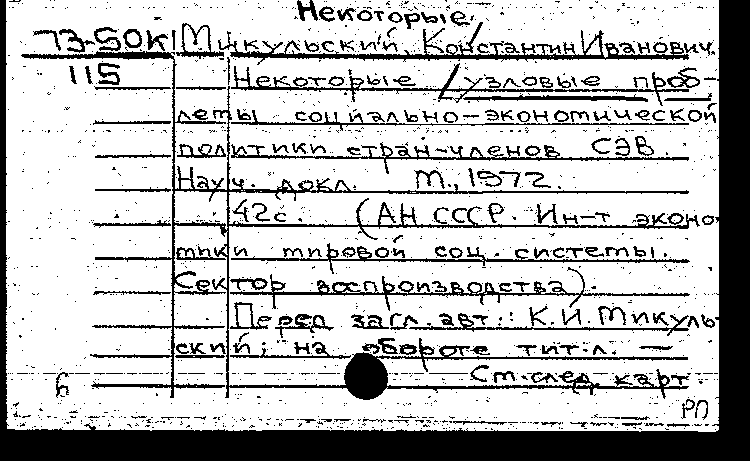 Некоторые
73-50К Микульский, Константин Иванович.
115 Некоторые узловые проб-
лемы социально-экономической
политики стран-членов СЭВ.
Науч. докл. М., 1972.
42с. (АН СССР. Ин-т эконо-
мики мировой соц. системы.
Сектор воспроизводства).
Перед загл. авт.: К.И. Микуль-
ский; на обороте тит. л. —
См. след. карт.
РП